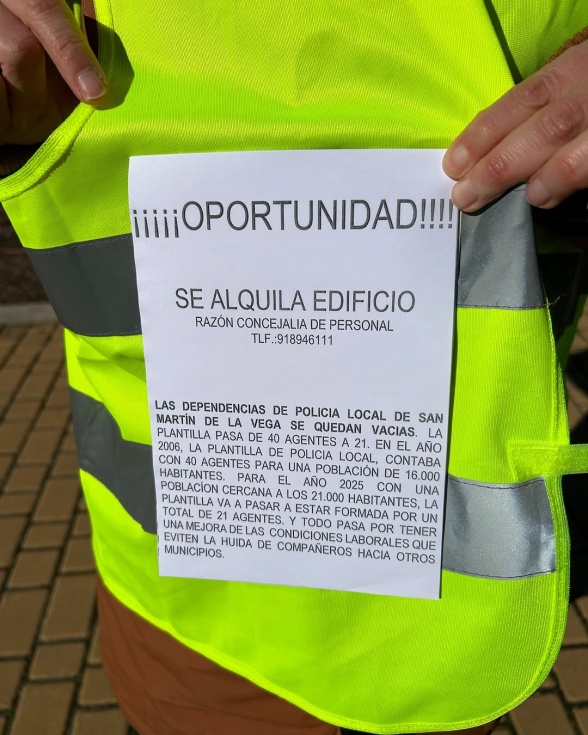 ¡¡¡¡¡OPORTUNIDAD!!!!
SE ALQUILA EDIFICIO
RAZÓN CONCEJALIA DE PERSONAL
TLF.:918946111
LAS DEPENDENCIAS DE POLICIA LOCAL DE SAN
MARTÍN DE LA VEGA SE QUEDAN VACIAS. LA
PLANTILLA PASA DE 40 AGENTES A 21. EN EL AÑO
2006, LA PLANTILLA DE POLICIA LOCAL, CONTABA
CON 40 AGENTES PARA UNA POBLACIÓN DE 16.000
HABITANTES. PARA EL AÑO 2025 CON UNA
POBLACIÓN CERCANA A LOS 21.000 HABITANTES, LA
PLANTILLA VA A PASAR A ESTAR FORMADA POR UN
TOTAL DE 21 AGENTES. Y TODO PASA POR TENER
UNA MEJORA DE LAS CONDICIONES LABORALES QUE
EVITEN LA HUIDA DE COMPAÑEROS HACIA OTROS
MUNICIPIOS.